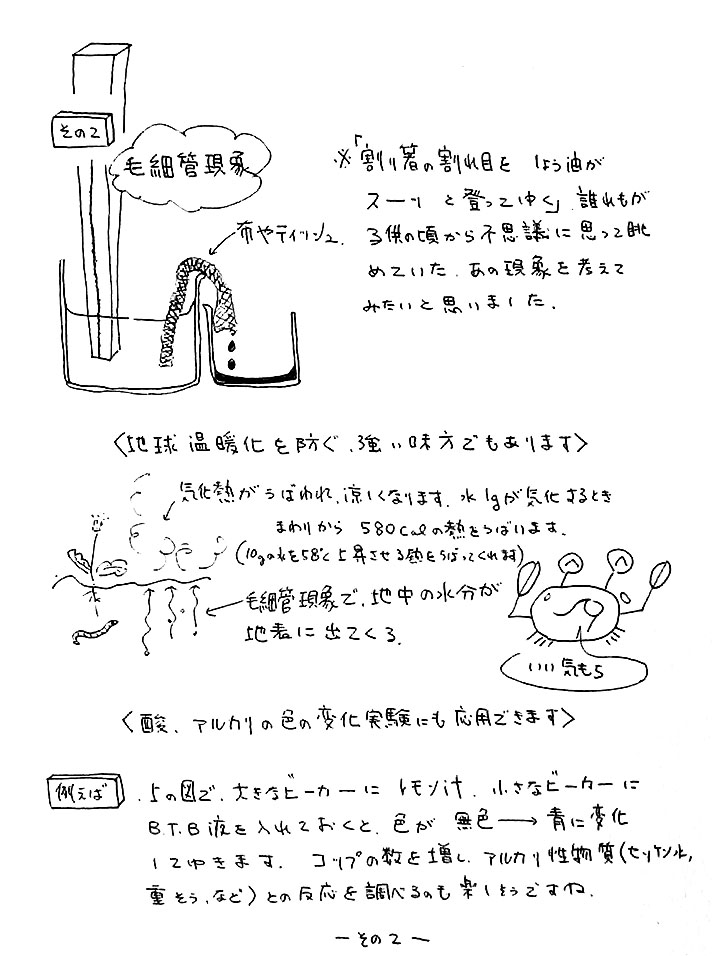 その2
毛細管現象
布やティッシュ
※「割り箸の割れ目を しょう油が
スーッ と登ってゆく」誰れもが
子供の頃から不思議に思って眺
めていた、あの現象を考えて
みたいと思いました.
〈地球温暖化を防ぐ、強い味方でもあります〉
気化熱がうばわれ、涼しくなります. 水1gが気化するとき
まわりから 580calの熱をうばいます.
(10gの水を58℃上昇させる熱をうばってくれます)
毛細管現象で、地中の水分が
地表に出てくる.
いい気もち
〈酸、アルカリの色の変化実験にも応用できます〉
例えば
上の図で、大きなビーカーに レモン汁、小さなビーカーに
B.T.B液を入れておくと、色が 無色→青に変化
してゆきます. コップの数を増し、アルカリ性物質(セッケン水,
重そう、など)との反応を調べるのも楽しそうですね.
ーその2ー